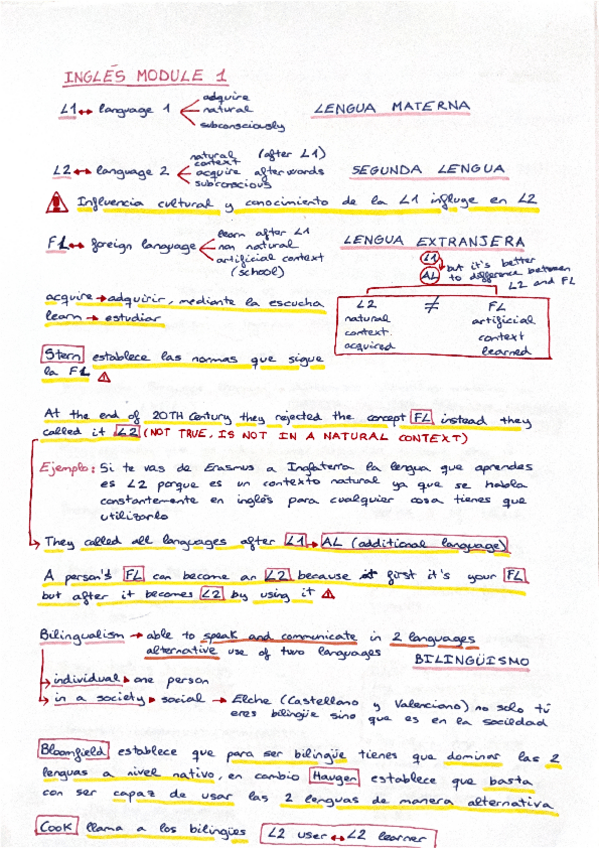 INGLÉS MODULE 1
L1 ↔ language 1
adquire
natural
subconsciously
LENGUA MATERNA
L2 ↔ language 2
natural context (after L1)
acquire afterwords
subconscious
SEGUNDA LENGUA
Influencia cultural y conocimiento de la L1 influye en L2
FL ↔ foreign language
learn after L1
non natural
artificial context
(school)
LENGUA EXTRANJERA
L1
AL
but it's better
to difference between
L2 and FL
acquire → adquirir, mediante la escucha
learn → estudiar
L2 ≠ FL
natural artificial
context. context
acquired learned
Stern establece las normas que sigue
la FL
At the end of 20TH Century they rejected the concept FL instead they
called it L2 (NOT TRUE, IS NOT IN A NATURAL CONTEXT)
Ejemplo: Si te vas de Erasmus a Inglaterra la lengua que aprendes
es L2 porque es un contexto natural ya que se habla
constantemente en inglés para cualquier cosa tienes que
utilizarlo
They called all languages after L1 → AL (additional language)
A person's FL can become an L2 because first it's your FL
but after it becomes L2 by using it
Bilingualism → able to speak and communicate in 2 languages
alternative use of two languages
BILINGÜISMO
individual → one person
in a society → social → Elche (Castellano y Valenciano) no solo tú
eres bilingüe sino que es en la sociedad
Bloomfield establece que para ser bilingüe tienes que dominar las 2
lenguas a nivel nativo, en cambio Haugen establece que basta
con ser capaz de usar las 2 lenguas de manera alternativa
Cook llama a los bilingües L2 user ↔ L2 learner